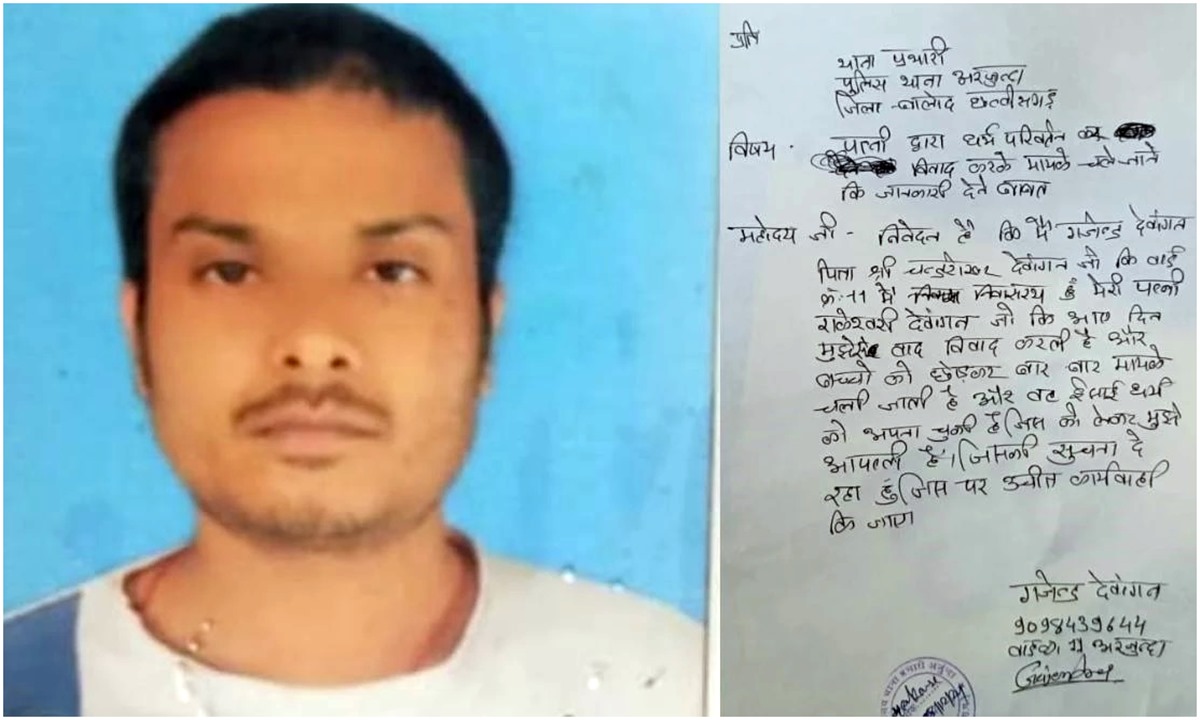 प्रति
थाना प्रभारी
पुलिस थाना अरजुन्दा
जिला - बालोद छत्तीसगढ़
विषय - पत्नी द्वारा धर्म परिवर्तन कर
विवाद करके मायके चले जाने
कि जानकारी देने बाबत
महोदय जी - निवेदन है कि मैं गजेन्द्र देवांगन
पिता श्री चन्द्रशेखर देवांगन जो कि वार्ड
क्र.-11 में निवासरथ हुं मेरी पत्नी
राजेश्वरी देवांगन जो कि आए दिन
मुझसे वाद विवाद करती है और
बच्चो को छोड़कर बार बार मायके
चली जाती है और वह ईसाई धर्म
को अपना चुकी है जिस को लेकर मुझे
आपत्ती है। जिसकी सुचना दे
रहा हुं जिस पर उचीत कार्यवाही
कि जाए
गजेन्द्र देवांगन
9098439644
वार्ड क्र 11 अरजुन्दा
Gajendra
थाना प्रभारी अर्जुन्दा